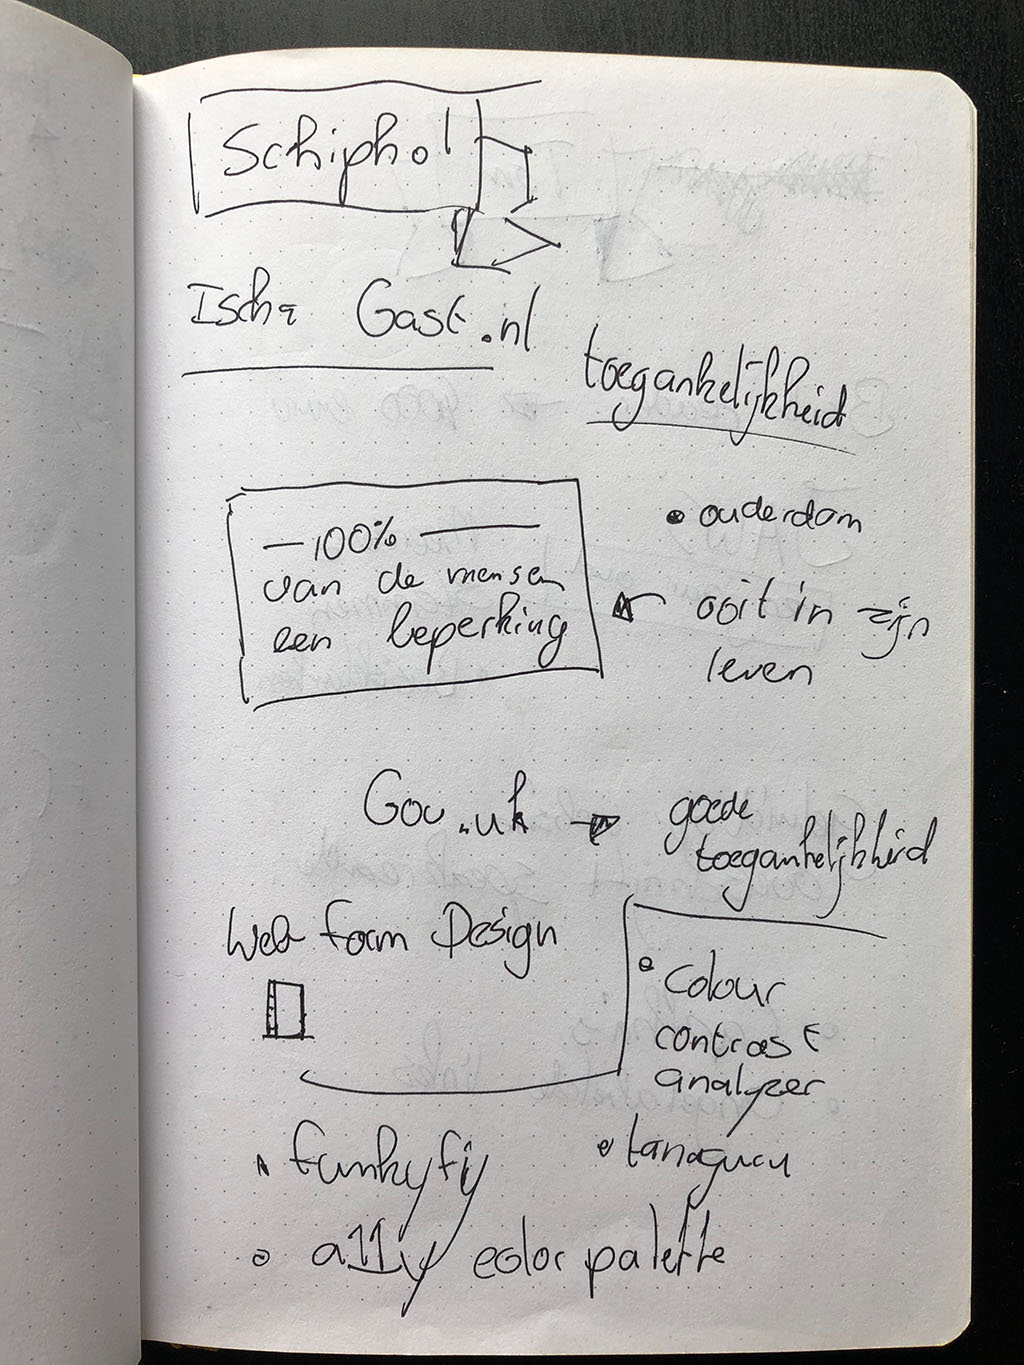 Schiphol
Ischa Gast.nl
toegankelijkheid
—100%—
van de mensen
een beperking
• ouderdom
ooit in zijn
leven
Gov.uk → goede
toegankelijkheid
Web form Design
• colour
contrast
analyzer
• funkyfy
• tanaguru
• a11y color palette